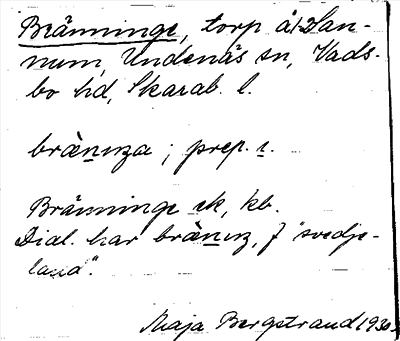 Bränninge, torp å 1/2 San-
num, Undenäs sn, Vads-
bo hd, Skarab. l.
brænıza; prep. ı.
Bränninge sk, kb.
Dial. har brænız, f "svedje-
land".
Maja Bergstrand 1930.